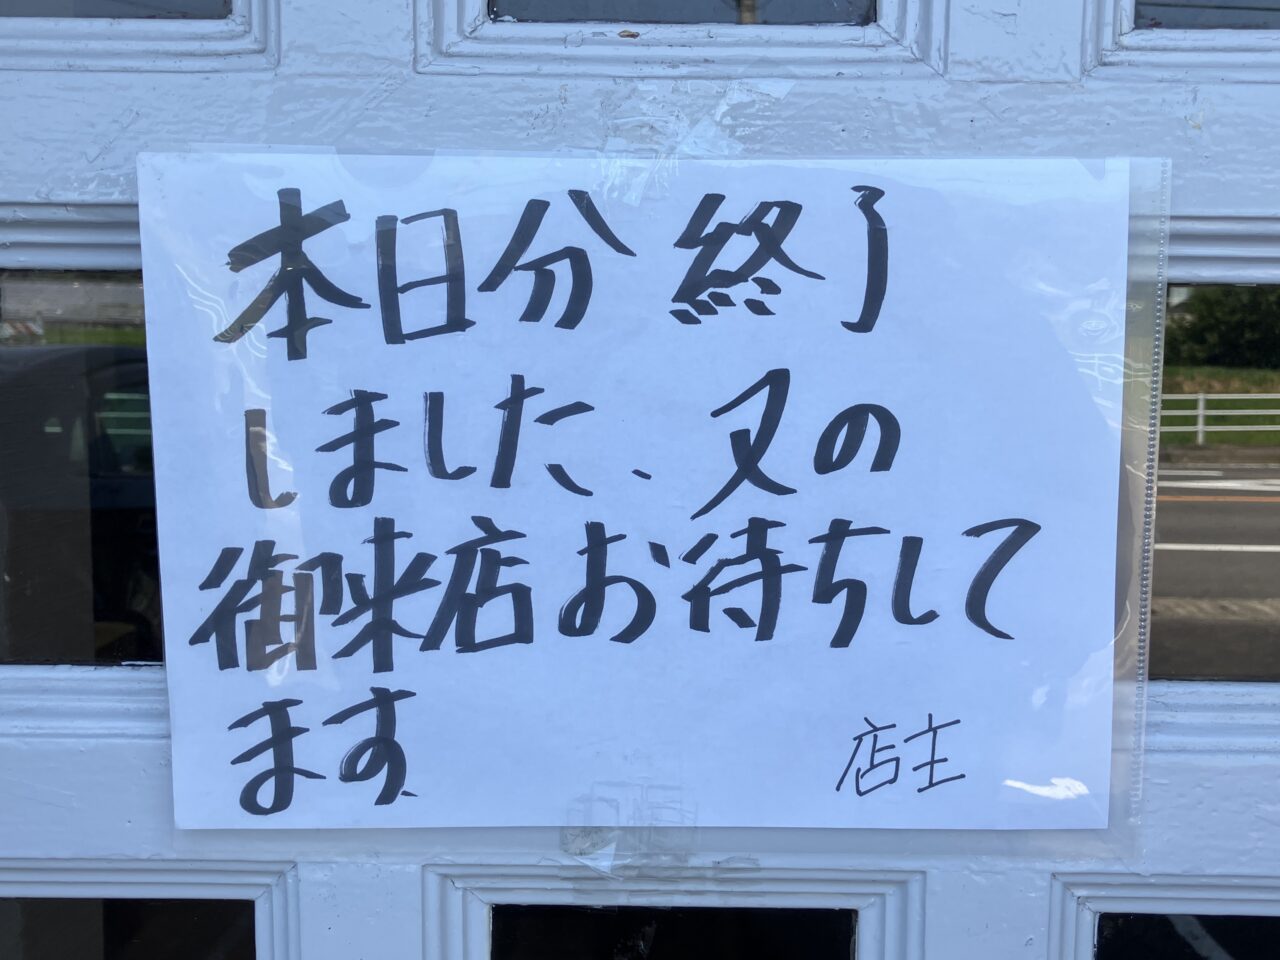 本日分 終了
しました、又の
御来店お待ちして
ます、
店主